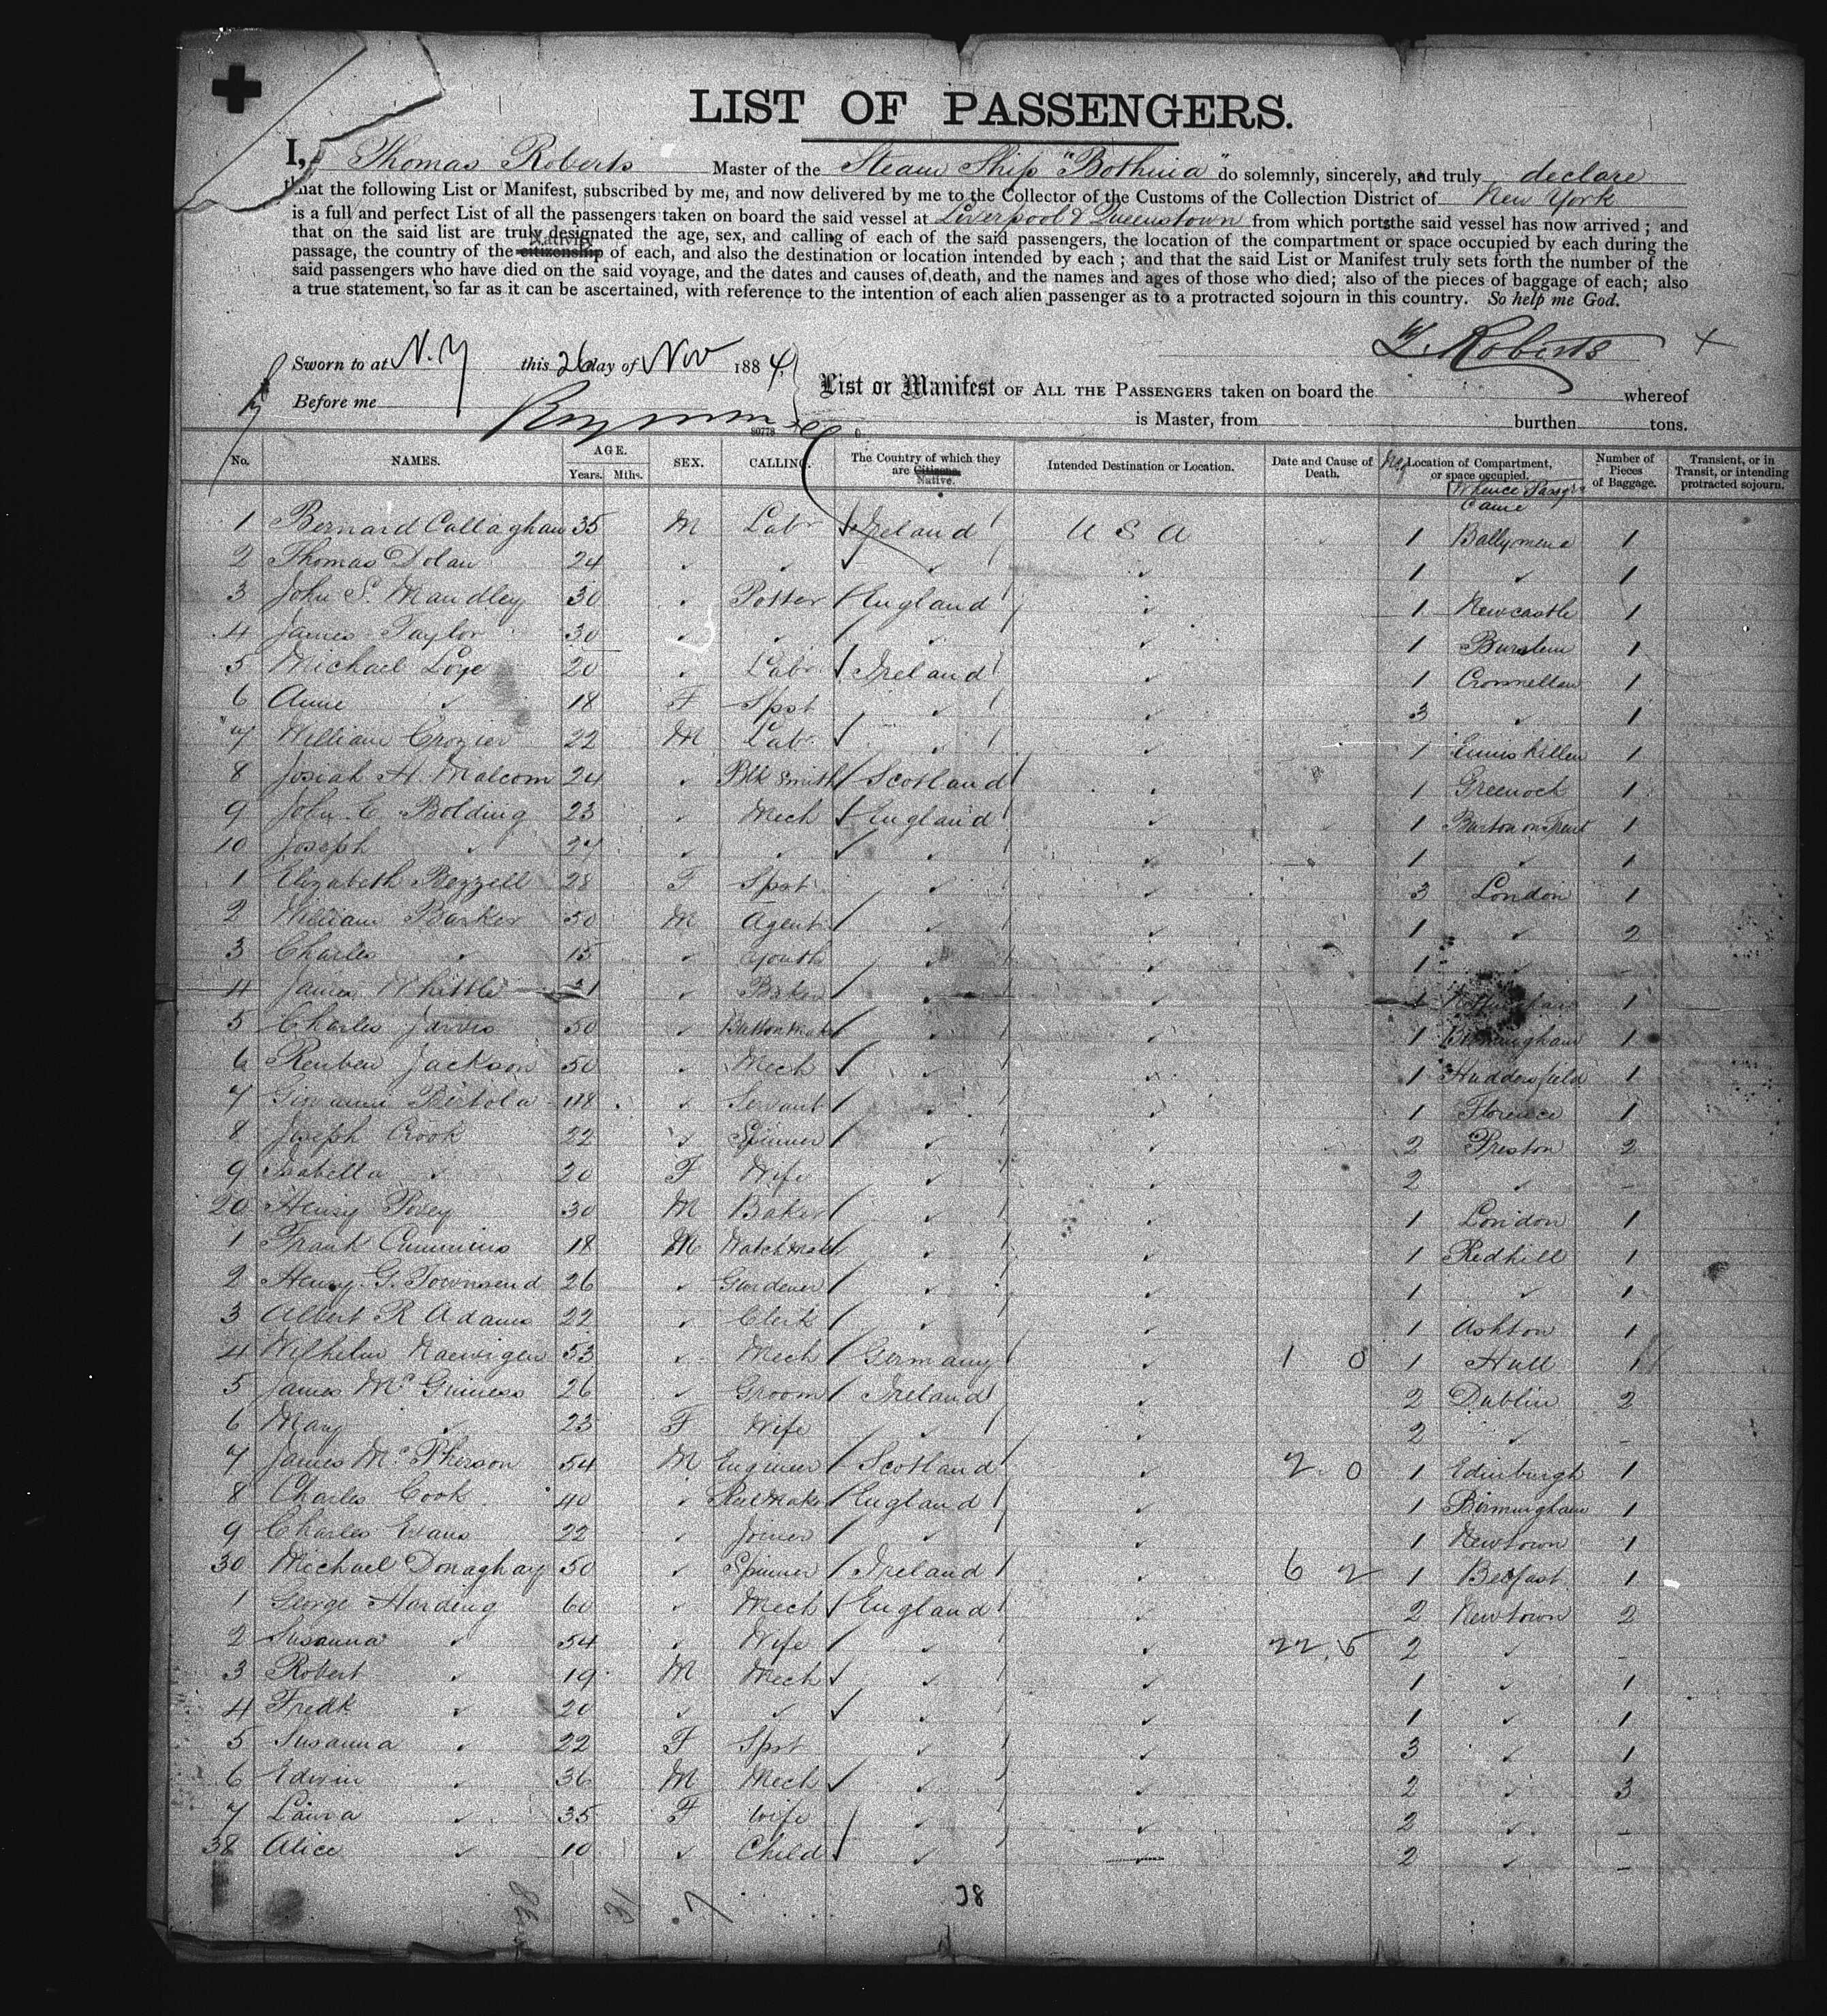 LIST OF PASSENGERS.
I, Thomas Roberts Master of the Steam Ship "Bothnia" do solemnly, sincerely, and truly declare
that the following List or Manifest, subscribed by me, and now delivered by me to the Collector of the Customs of the Collection District of New York
is a full and perfect List of all the passengers taken on board the said vessel at Liverpool & Queenstown from which ports the said vessel has now arrived; and
that on the said list are truly designated the age, sex, and calling of each of the said passengers, the location of the compartment or space occupied by each during the
passage, the country of the citizenship Nativity of each, and also the destination or location intended by each; and that the said List or Manifest truly sets forth the number of the
said passengers who have died on the said voyage, and the dates and causes of death, and the names and ages of those who died; also of the pieces of baggage of each; also
a true statement, so far as it can be ascertained, with reference to the intention of each alien passenger as to a protracted sojourn in this country. So help me God.
Roberts X
Sworn to at N.Y this 26 day of Nov 1884
List or Manifest OF ALL THE PASSENGERS taken on board the whereof
Before me
is Master, from burthen tons.
80778
No. NAMES. AGE. Years. Mths. SEX. CALLING. The Country of which they are Citizens. Native. Intended Destination or Location. Date and Cause of Death. Location of Compartment, or space occupied. Whence Passgrs Came Number of Pieces of Baggage. Transient, or in Transit, or intending protracted sojourn.
1 Bernard Callaghan 35 M Labr Ireland U S A 1 Ballymena 1
2 Thomas Dolan 24 ✓ ✓ ✓ ✓ 1 ✓ 1
3 John S. Mandley 30 ✓ Potter England ✓ 1 Newcastle 1
4 James Taylor 30 ✓ ✓ ✓ ✓ 1 Burslem 1
5 Michael Loye 20 ✓ Labr Ireland ✓ 1 1
6 Anne ✓ 18 F Spst ✓ ✓ 3 ✓ 1
7 William Crozier 22 M Labr ✓ ✓ 1 Enniskillen 1
8 Josiah H. Malcom 24 ✓ Blk Smith Scotland ✓ 1 Greenock 1
9 John C. Bolding 23 ✓ Mech England ✓ 1 Burton on Trent 1
10 Joseph ✓ ✓ ✓ ✓ ✓ 1 ✓ 1
1 Elizabeth Bezzell 28 F Spst ✓ ✓ 3 London 1
2 William Barker 50 M Agent ✓ ✓ 1 ✓ 2
3 Charles ✓ 15 ✓ Youth ✓ ✓ 1 ✓ -
4 James Whittle ✓ Baker ✓ ✓ 1 1
5 Charles Jarvis 50 ✓ Button Maker ✓ ✓ 1 Birmingham 1
6 Reuben Jackson 50 ✓ Mech ✓ ✓ 1 Huddersfield 1
7 Giovanni Bertola 18 ✓ Servant ✓ ✓ 1 Florence 1
8 Joseph Crook 22 ✓ Spinner ✓ ✓ 2 Preston 2
9 Isabella ✓ 20 F Wife ✓ ✓ 2 ✓ -
20 Henry Povey 30 M Baker ✓ ✓ 1 London 1
1 Frank Cummins 18 M Watch Maker ✓ ✓ 1 Redhill 1
2 Henry G. Townsend 26 ✓ Gardener ✓ ✓ 1 ✓ 1
3 Albert R Adams 22 ✓ Clerk ✓ ✓ 1 Ashton 1
4 Wilhelm 53 ✓ Mech Germany ✓ 1 0 1 Hull 1
5 James McGuiness 26 ✓ Groom Ireland ✓ 2 Dublin 2
6 Mary ✓ 23 F Wife ✓ ✓ 2 ✓ -
7 James McPherson 54 M Engineer Scotland ✓ 2 0 1 Edinburgh 1
8 Charles Cook 40 ✓ England ✓ 1 Birmingham 1
9 Charles Evans 22 ✓ Joiner ✓ ✓ 1 Newtown 1
30 Michael Donaghay 50 ✓ Spinner Ireland ✓ 6 2 1 Belfast 1
1 George Harding 60 ✓ Mech England ✓ 2 Newtown 2
2 Susanna ✓ 54 ✓ Wife ✓ ✓ 22.5 2 ✓ -
3 Robert ✓ 19 M Mech ✓ ✓ 1 ✓ 1
4 Fredk ✓ 20 ✓ ✓ ✓ ✓ 1 ✓ 1
5 Susanna ✓ 22 F Spst ✓ ✓ 3 ✓ 1
6 Edwin ✓ 36 M Mech ✓ ✓ 2 ✓ 3
7 Laura ✓ 35 F Wife ✓ ✓ 2 ✓ -
38 Alice ✓ 10 ✓ Child ✓ — 2 ✓ -
38 31 7 38